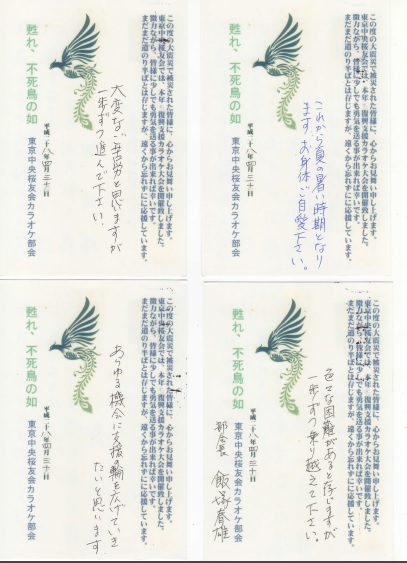 この度の大震災で被災された皆様に、心からお見舞い申し上げます。
東京中央桜友会では、本年、復興支援カラオケ大会を開催致しました。
微力ながら、皆様に少しでも勇気を送る事が出来れば幸いです。
まだまだ道のり半ばとは存じますが、遠くから忘れずにに応援しています。
大変なご苦労と思いますが
一歩ずつ進んで下さい.
平成二十八年四月三十日
東京中央桜友会カラオケ部会
甦れ、不死鳥の如
この度の大震災で被災された皆様に、心からお見舞い申し上げます。
東京中央桜友会では、本年、復興支援カラオケ大会を開催致しました。
微力ながら、皆様に少しでも勇気を送る事が出来れば幸いです。
まだまだ道のり半ばとは存じますが、遠くから忘れずにに応援しています。
これから夏の暑い時期となり
ます、お身体ご自愛下さい。
平成二十八年四月三十日
東京中央桜友会カラオケ部会
甦れ、不死鳥の如
この度の大震災で被災された皆様に、心からお見舞い申し上げます。
東京中央桜友会では、本年、復興支援カラオケ大会を開催致しました。
微力ながら、皆様に少しでも勇気を送る事が出来れば幸いです。
まだまだ道のり半ばとは存じますが、遠くから忘れずにに応援しています。
あらゆる機会に支援の輪を広げていき
たいと思います
平成二十八年四月三十日
東京中央桜友会カラオケ部会
甦れ、不死鳥の如
この度の大震災で被災された皆様に、心からお見舞い申し上げます。
東京中央桜友会では、本年、復興支援カラオケ大会を開催致しました。
微力ながら、皆様に少しでも勇気を送る事が出来れば幸いです。
まだまだ道のり半ばとは存じますが、遠くから忘れずにに応援しています。
色々な困難があると存じますが
一歩ずつ乗り越えて下さい。
部会長 飯塚春雄
平成二十八年四月三十日
東京中央桜友会カラオケ部会
甦れ、不死鳥の如